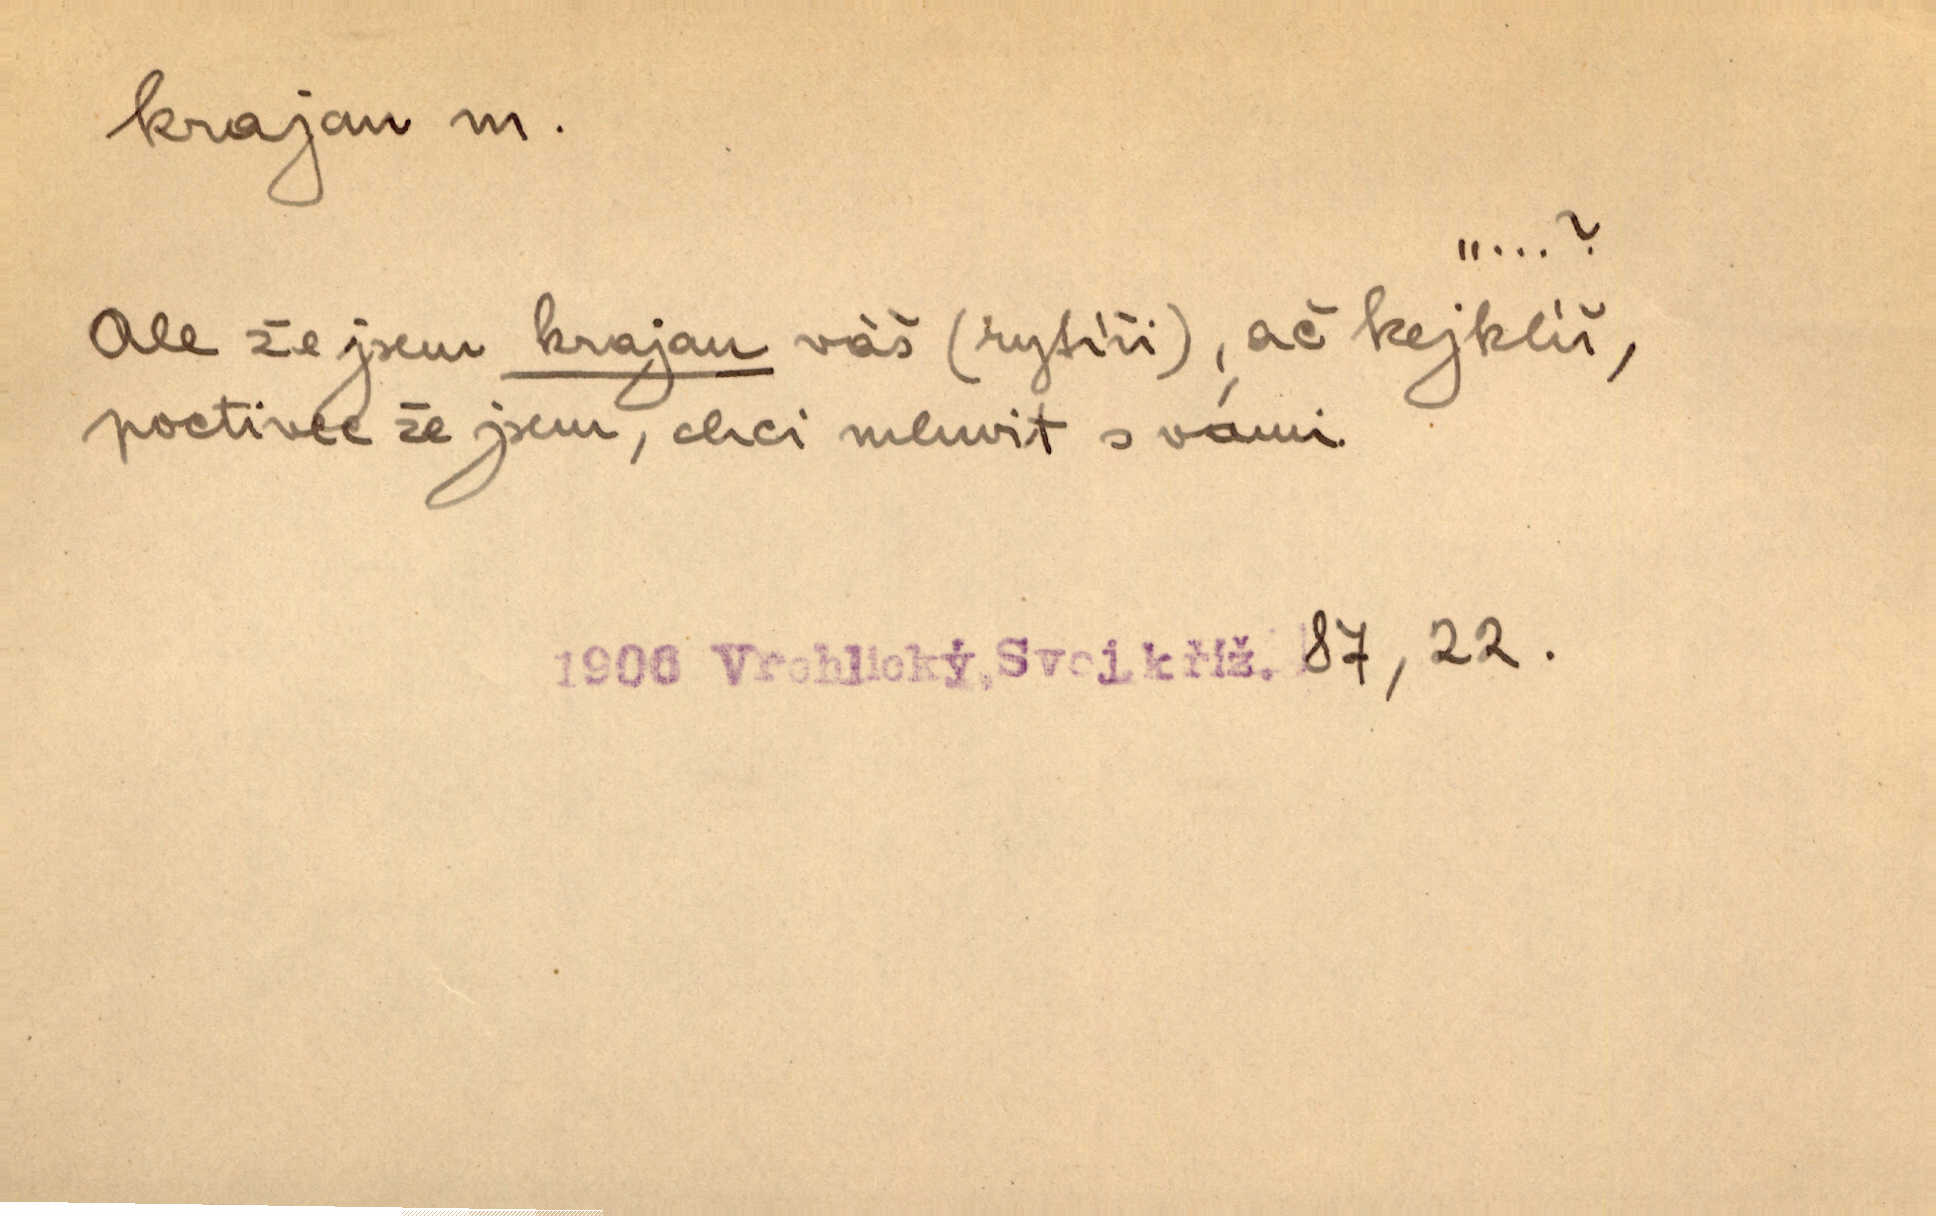 krajan m.
"...?
Ale že jsem krajan váš (rytíři), ač kejklíř,
poctivec že jsem, chci mluvit s vámi.
1906 Vrchlický, Svoj. kříž. 87, 22.